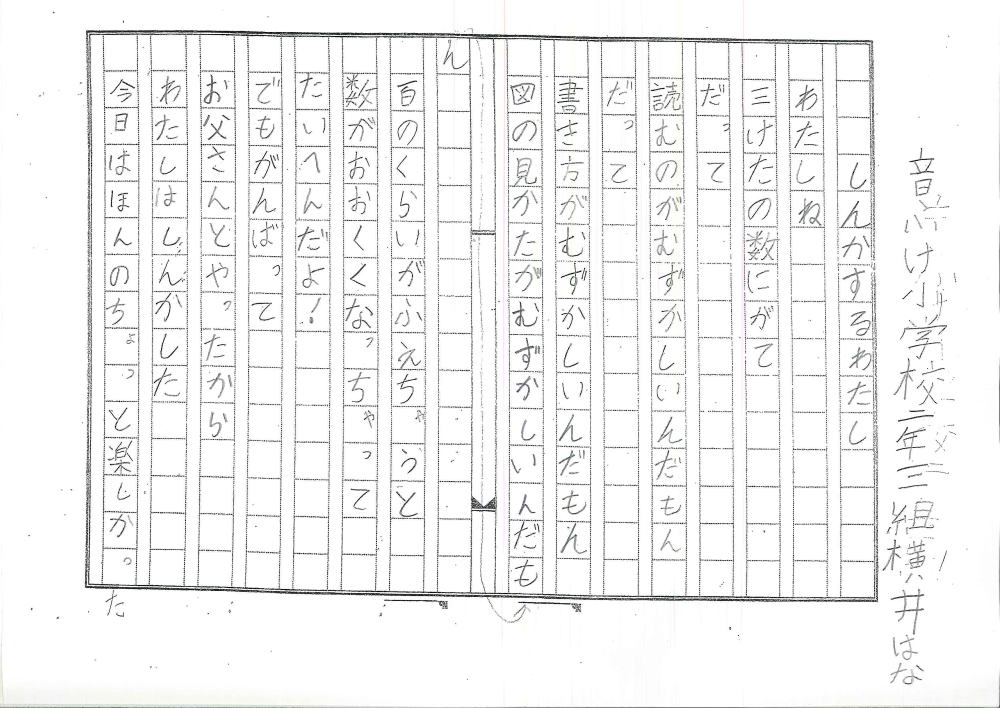 小学校二年三組横井はな
しんかするわたし
わたしね
三けたの数にがて
だって
読むのがむずかしいんだもん
だって
書き方がむずかしいんだもん
図の見かたがむずかしいんだも
ん
百のくらいがふえちゃうと
数がおおくくなっちゃって
たいへんだよ!
でもがんばって
お父さんとやったから
わたしはしんかした
今日はほんのちょっと楽しかった